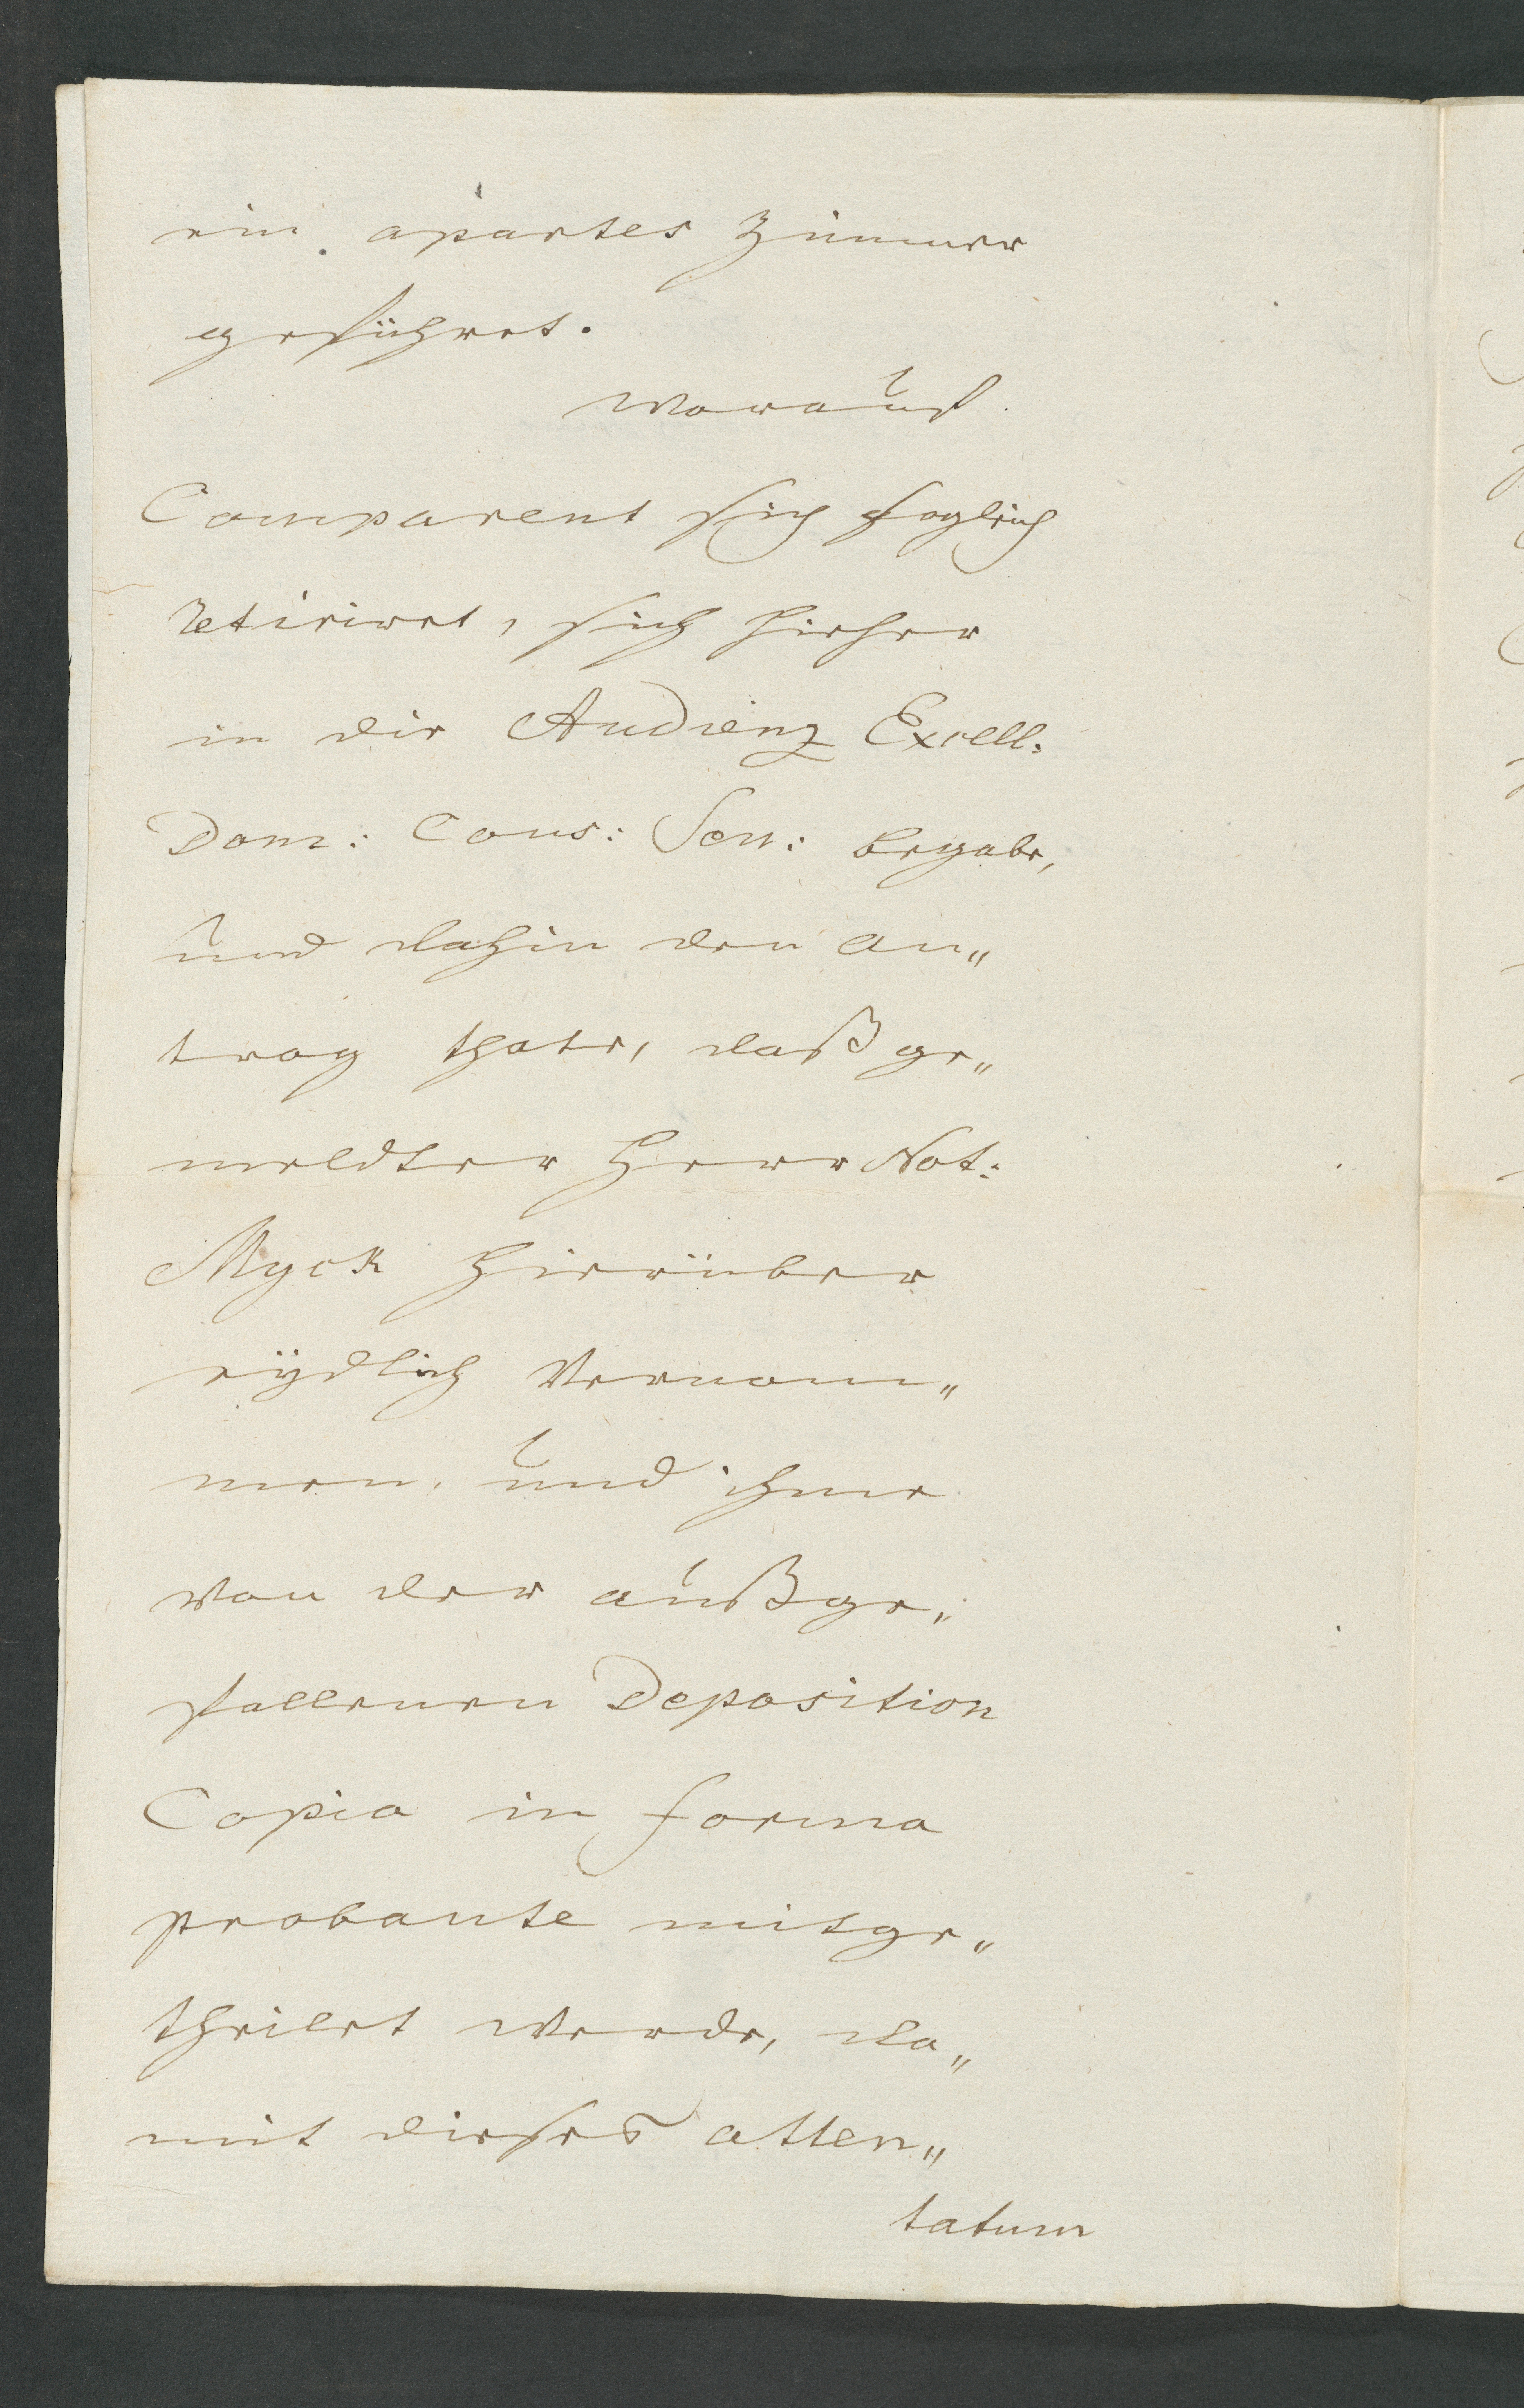 ein apartes Zimmer
geführet.
worauf
Comparent sich sogleich
retiriret, sich hieher
in die Audienz Excell:
Dom: Cons: Sen: begabe,
und dahin den an„
trag thate, daß ge„
meldter Herr Not:
Myck hierüber
eydlich vernom„
men, und ihme
von der außge„
fallenen Deposition
Copia in forma
probante mitge„
theilet werde, da„
mit dieses atten„
tatum